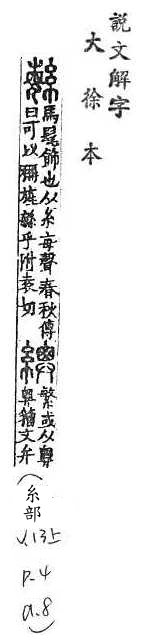 說文解字
大徐本
馬髦飾也从糸每聲春秋傳
曰可以稱旌緐乎附袁切
緐或从
籀文弁
(糸部
V.13上
P.4
a.8)